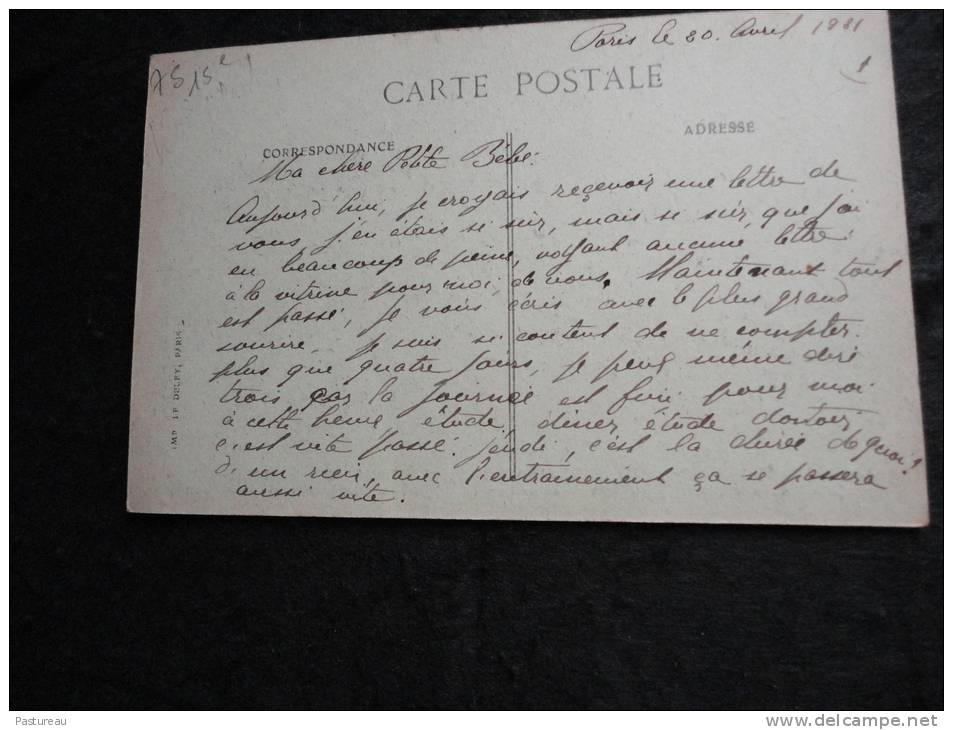 Paris le 20. Avril 1921
75 15e
1
CARTE POSTALE
CORRESPONDANCE
ADRESSE
Ma chère Petite Bébé.
Aujourd'hui, je croyais reçevoir une lettre de
vous, j'en étais si sûr, mais si sûr, que j'ai
eu beaucoup de peine, voyant aucune lettre
à la vitrine pour moi, de vous. Maintenant tout
est passé, je vous écris avec le plus grand
sourire, je suis si content de ne compter
plus que quatre jours, je peux même dire
trois car la journée est fini pour moi
à cette heure étude, diner, étude dortoir
c'est vite passé. jeudi, c'est la durée de quoi!
d'un rien, avec l'entrainement ça se passera
aussi vite.
IMP. LE DELEY, PARIS
Pastureau
www.delcampe.net